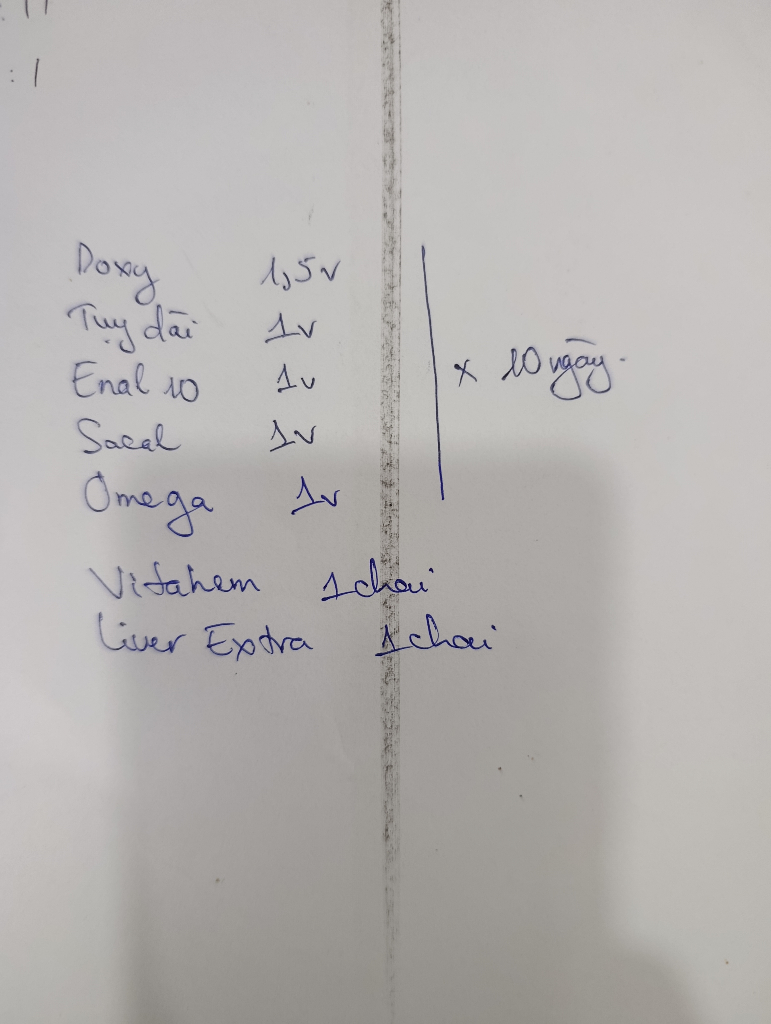 : 11
: 1
Doxy 1,5v
Tụy dài 1v
Enal 10 1v
Sacal 1v
Omega 1v
x 10 ngày.
Vitahem 1 chai
Liver Extra 1 chai